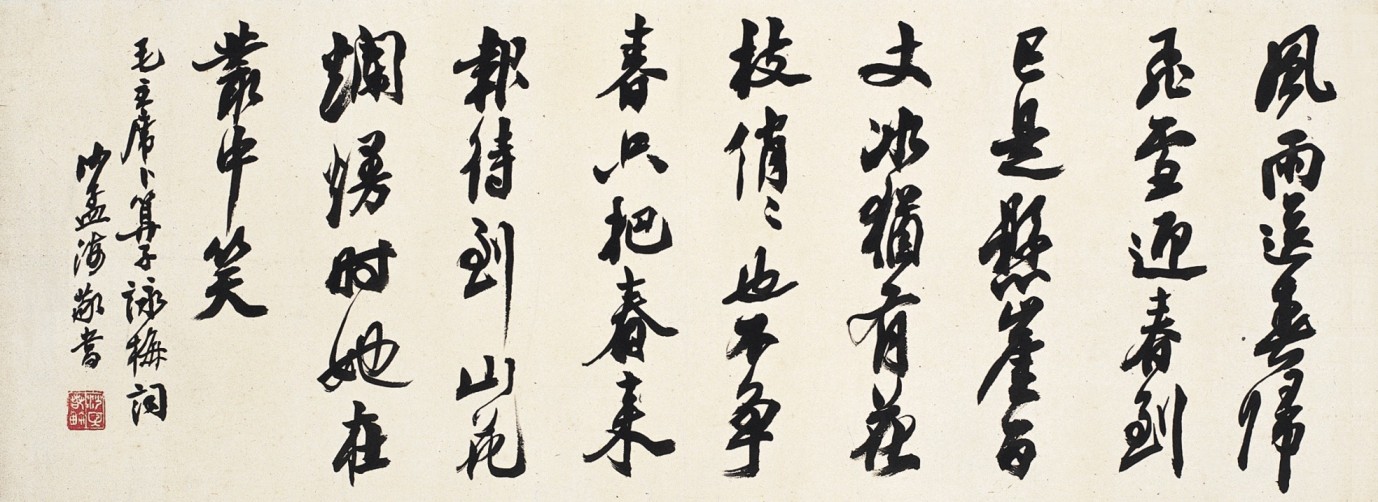 風雨送春歸
飛雪迎春到
已是懸崖百
丈冰猶有花
枝俏〻也不争
春只把春来
報待到山花
爛熳时她在
叢中笑
毛主席卜算子詠梅詞
沙孟海敬書